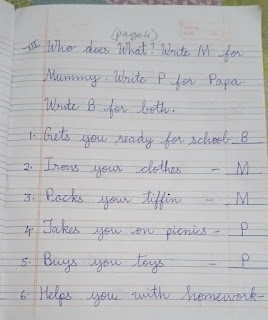 (page 4)
III Who does What? Write M for
Mummy. Write P for Papa.
Write B for both.
1. Gets you ready for school B
2. Irons your clothes - M
3. Packs your tiffin - M
4. Takes you on picnics - P
5. Buys you toys - P
6. Helps you with homework-